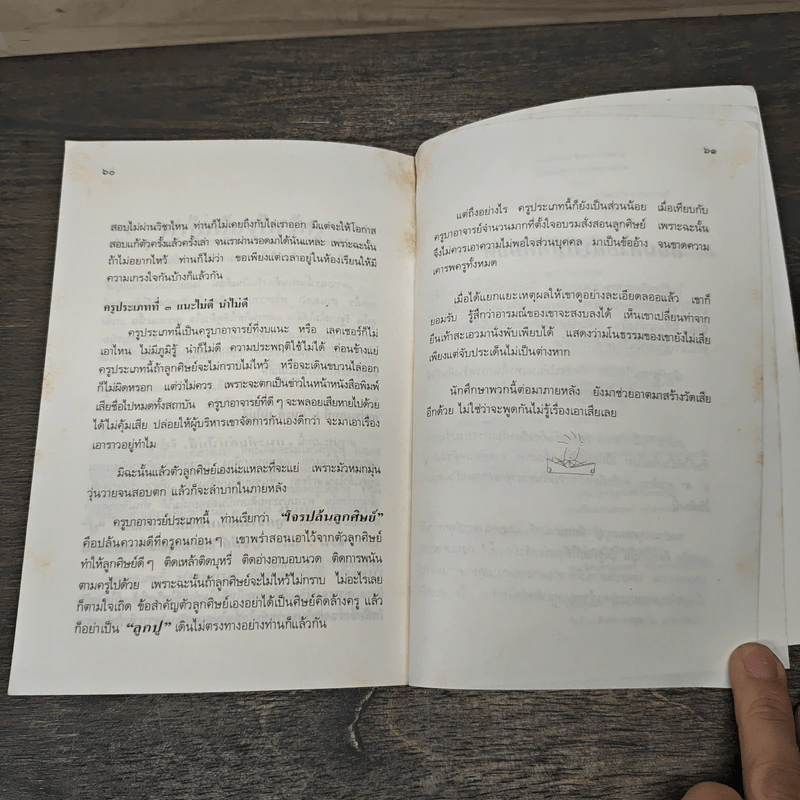 ๖๐
สอบไม่ผ่านวิชาไหน ท่านก็ไม่เคยถึงกับไล่เราออก มีแต่จะให้โอกาส
สอบแก้ตัวครั้งแล้วครั้งเล่า จนเราผ่านรอดมาได้นั่นแหละ เพราะฉะนั้น
ถ้าไม่อยากไหว้ ท่านก็ไม่ว่า ขอเพียงแต่เวลาอยู่ในห้องเรียนให้มี
ความเกรงใจกันบ้างก็แล้วกัน
ครูประเภทที่ ๓ แนะไม่ดี นำไม่ดี
ครูประเภทนี้เป็นครูบาอาจารย์ที่งบแนะ หรือ เลคเชอร์ก็ไม่
เอาไหน ไม่มีภูมิรู้ นำก็ไม่ดี ความประพฤติใช้ไม่ได้ ค่อนข้างแย่
ครูประเภทนี้ถ้าลูกศิษย์จะไม่กราบไม่ไหว้ หรือจะเดินขบวนไล่ออก
ก็ไม่ผิดหรอก แต่ว่าไม่ควร เพราะจะตกเป็นข่าวในหน้าหนังสือพิมพ์
เสียชื่อไปหมดทั้งสถาบัน ครูบาอาจารย์ที่ดีๆ จะพลอยเสียหายไปด้วย
ได้ไม่คุ้มเสีย ปล่อยให้ผู้บริหารเขาจัดการกันเองดีกว่า จะมาเอาเรื่อง
เอาราวอยู่ทำไม
มิฉะนั้นแล้วตัวลูกศิษย์เองน่ะแหละที่จะแย่ เพราะมัวหมกมุ่น
วุ่นวายจนสอบตก แล้วก็จะลำบากในภายหลัง
ครูบาอาจารย์ประเภทนี้ ท่านเรียกว่า “โจรปล้นลูกศิษย์”
คือปล้นความดีที่ครูคนก่อนๆ เขาพร่ำสอนเอาไว้จากตัวลูกศิษย์
ทำให้ลูกศิษย์ดีๆ ติดเหล้าติดบุหรี่ ติดอ่างอาบอบนวด ติดการพนัน
ตามครูไปด้วย เพราะฉะนั้นถ้าลูกศิษย์จะไม่ไหว้ไม่กราบ ไม่อะไรเลย
ก็ตามใจเถิด ข้อสำคัญตัวลูกศิษย์เองอย่าได้เป็นศิษย์คิดล้างครู แล้ว
ก็อย่าเป็น “ลูกปู” เดินไม่ตรงทางอย่างท่านก็แล้วกัน
๖๑
แต่ถึงอย่างไร ครูประเภทนี้ก็ยังเป็นส่วนน้อย เมื่อเทียบกับ
ครูบาอาจารย์จำนวนมากที่ตั้งใจอบรมสั่งสอนลูกศิษย์ เพราะฉะนั้น
จึงไม่ควรเอาความไม่พอใจส่วนบุคคล มาเป็นข้ออ้าง จนขาดความ
เคารพครูทั้งหมด
เมื่อได้แยกแยะเหตุผลให้เขาดูอย่างละเอียดลออแล้ว เขาก็
ยอมรับ รู้สึกว่าอารมณ์ของเขาจะสงบลงได้ เห็นเขาเปลี่ยนท่าจาก
ยืนเท้าสะเอวมานั่งพับเพียบได้ แสดงว่ามโนธรรมของเขายังไม่เสีย
เพียงแต่จับประเด็นไม่เป็นต่างหาก
นักศึกษาพวกนี้ต่อมาภายหลัง ยังมาช่วยอาตมาสร้างวัดเสีย
อีกด้วย ไม่ใช่ว่าจะพูดกันไม่รู้เรื่องเอาเสียเลย